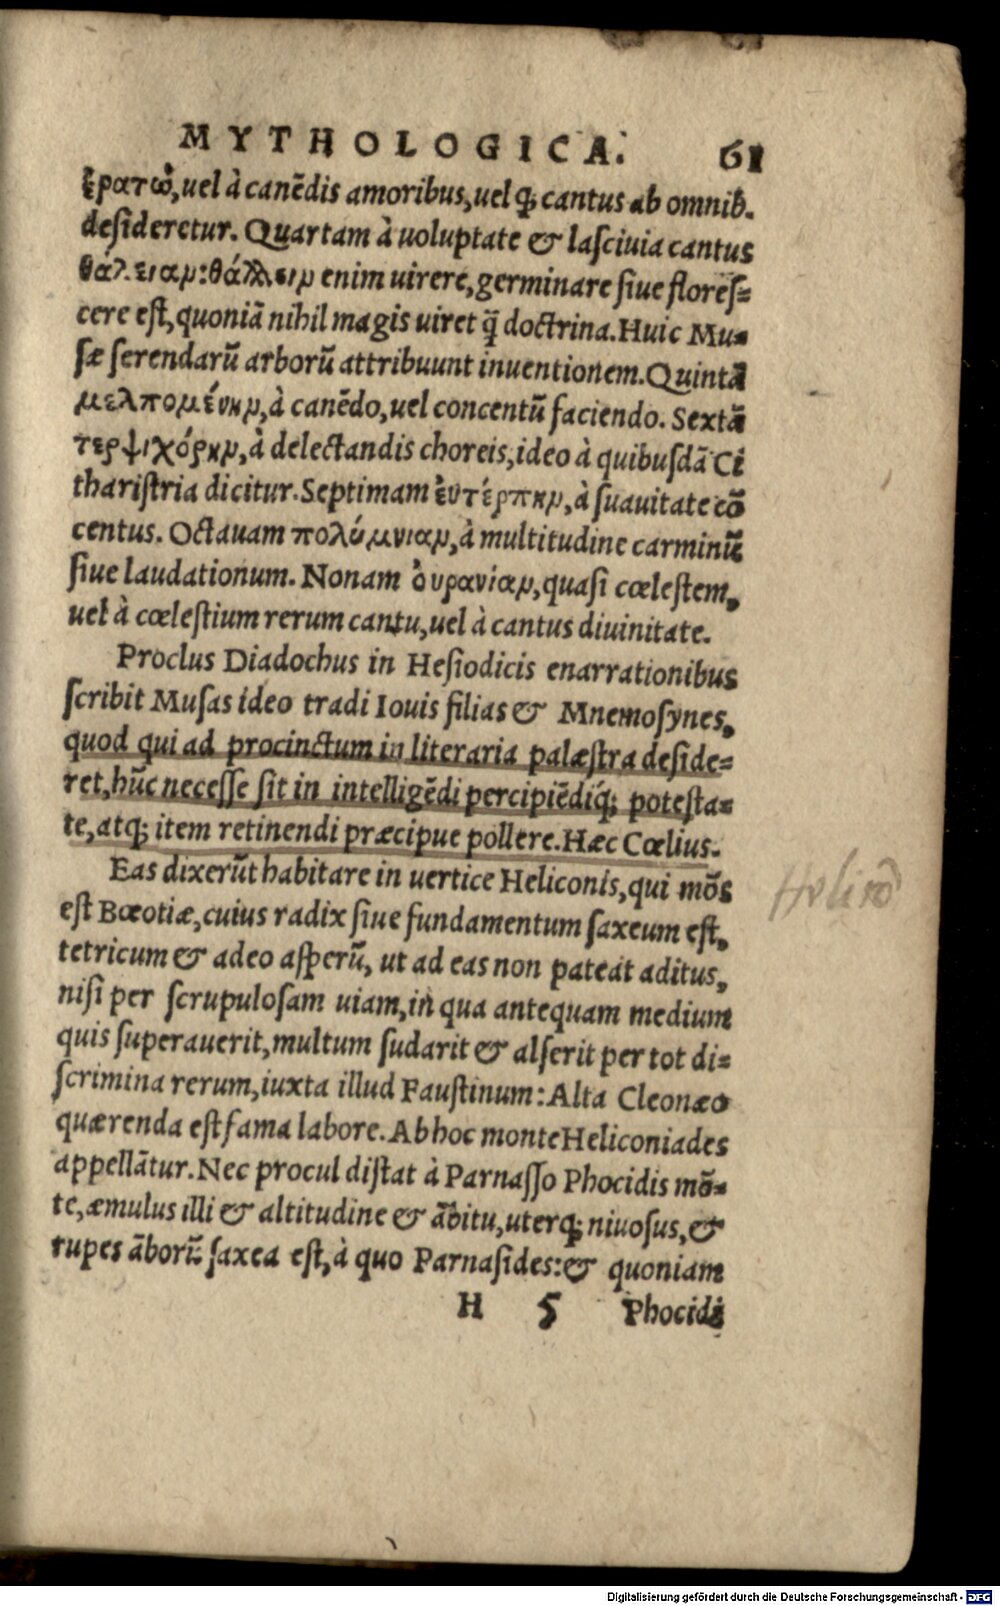 MYTHOLOGICA. 61
ἐρατὼ, uel à canẽdis amoribus, uel q; cantus ab omnib.
desideretur. Quartam à uoluptate & lasciuia cantus
θάλειαν: θάλλειν enim uirere, germinare siue flores-
cere est, quoniã nihil magis uiret q̃ doctrina. Huic Mu-
sæ serendarũ arborũ attribuunt inuentionem. Quintã
μελπομένην, à canẽdo, uel concentũ faciendo. Sextã
τερψιχόρην, à delectandis choreis, ideo à quibusdã Ci
tharistria dicitur. Septimam ἐυτέρπην, à suauitate cõ
centus. Octauam πολύμνιαν, à multitudine carminũ
siue laudationum. Nonam ὀυρανίαν, quasi cœlestem,
uel à cœlestium rerum cantu, uel à cantus diuinitate.
Proclus Diadochus in Hesiodicis enarrationibus
scribit Musas ideo tradi Iouis filias & Mnemosynes,
quod qui ad procinctum in literaria palæstra deside-
ret, hũc necesse sit in intelligẽdi percipiẽdiq́; potesta-
te, atq; item retinendi præcipue pollere. Hæc Cœlius.
Eas dixerũt habitare in uertice Heliconis, qui mõs
est Bœotiæ, cuius radix siue fundamentum saxeum est,
tetricum & adeo asperũ, ut ad eas non pateat aditus,
nisi per scrupulosam uiam, in qua antequam medium
quis superauerit, multum sudarit & alserit per tot di-
scrimina rerum, iuxta illud Faustinum: Alta Cleonæo
quærenda est fama labore. Ab hoc monte Heliconiades
appellãtur. Nec procul distat à Parnasso Phocidis mõ-
te, æmulus illi & altitudine & ãbitu, uterq; niuosus, &
rupes ãborũ saxea est, à quo Parnasides: & quoniam
H 5 Phocidi
Digitalisierung gefördert durch die Deutsche Forschungsgemeinschaft - DFG